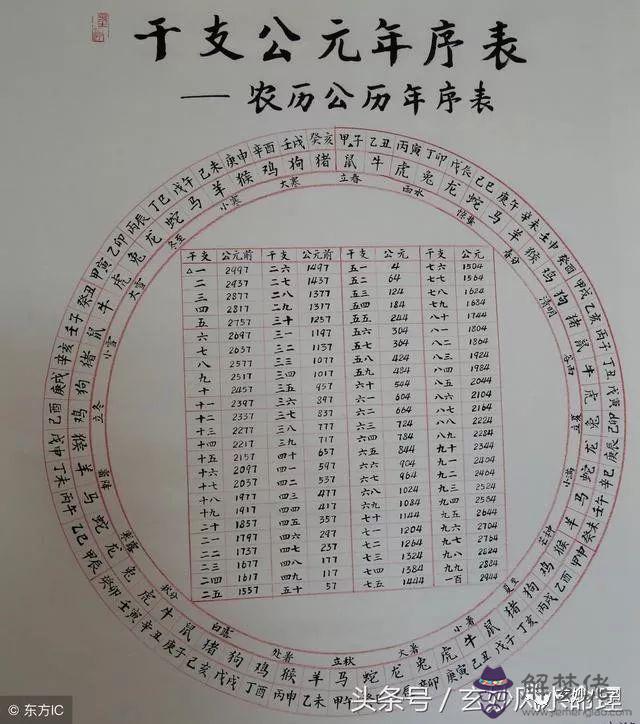 干支公元年序表
——农历公历年序表
甲子 乙丑 丙寅 丁卯 戊辰 己巳 庚午 辛未 壬申 癸酉 甲戌 乙亥 丙子 丁丑 戊寅 己卯 庚辰 辛巳 壬午 癸未 甲申 乙酉 丙戌 丁亥 戊子 己丑 庚寅 辛卯 壬辰 癸巳 甲午 乙未 丙申 丁酉 戊戌 己亥 庚子 辛丑 壬寅 癸卯 甲辰 乙巳 丙午 丁未 戊申 己酉 庚戌 辛亥 壬子 癸丑 甲寅 乙卯 丙辰 丁巳 戊午 己未 庚申 辛酉 壬戌 癸亥
鼠 牛 虎 兔 龙 蛇 马 羊 猴 鸡 狗 猪 鼠 牛 虎 兔 龙 蛇 马 羊 猴 鸡 狗 猪 鼠 牛 虎 兔 龙 蛇 马 羊 猴 鸡 狗 猪 鼠 牛 虎 兔 龙 蛇 马 羊 猴 鸡 狗 猪 鼠 牛 虎 兔 龙 蛇 马 羊 猴 鸡 狗 猪
立春 雨水 惊蛰 春分 清明 谷雨 立夏 小满 芒种 夏至 小暑 大暑 立秋 处暑 白露 秋分 寒露 霜降 立冬 小雪 大雪 冬至 小寒 大寒
干支 公元前 干支 公元前 干支 公元 干支 公元
△一 2997 二六 1497 五一 4 七六 1504
二 2937 二七 1437 五二 64 七七 1564
三 2877 二八 1377 五三 124 七八 1624
四 2817 二九 1317 五四 184 七九 1684
五 2757 三十 1257 五五 244 八十 1744
六 2697 三一 1197 五六 304 八一 1804
七 2637 三二 1137 五七 364 八二 1864
八 2577 三三 1077 五八 424 八三 1924
九 2517 三四 1017 五九 484 八四 1984
十 2457 三五 957 六十 544 八五 2044
十一 2397 三六 897 六一 604 八六 2104
十二 2337 三七 837 六二 664 八七 2164
十三 2277 三八 777 六三 724 八八 2224
十四 2217 三九 717 六四 784 八九 2284
十五 2157 四十 657 六五 844 九十 2344
十六 2097 四一 597 六六 904 九一 2404
十七 2037 四二 537 六七 964 九二 2464
十八 1977 四三 477 六八 1024 九三 2524
十九 1917 四四 417 六九 1084 九四 2584
二十 1857 四五 357 七十 1144 九五 2644
二一 1797 四六 297 七一 1204 九六 2704
二二 1737 四七 237 七二 1264 九七 2764
二三 1677 四八 177 七三 1324 九八 2824
二四 1617 四九 117 七四 1384 九九 2884
二五 1557 五十 57 七五 1444 一百 2944
©东方IC
头条号 / 玄妙风水命理
解梦佬
www.jiemenglao.com